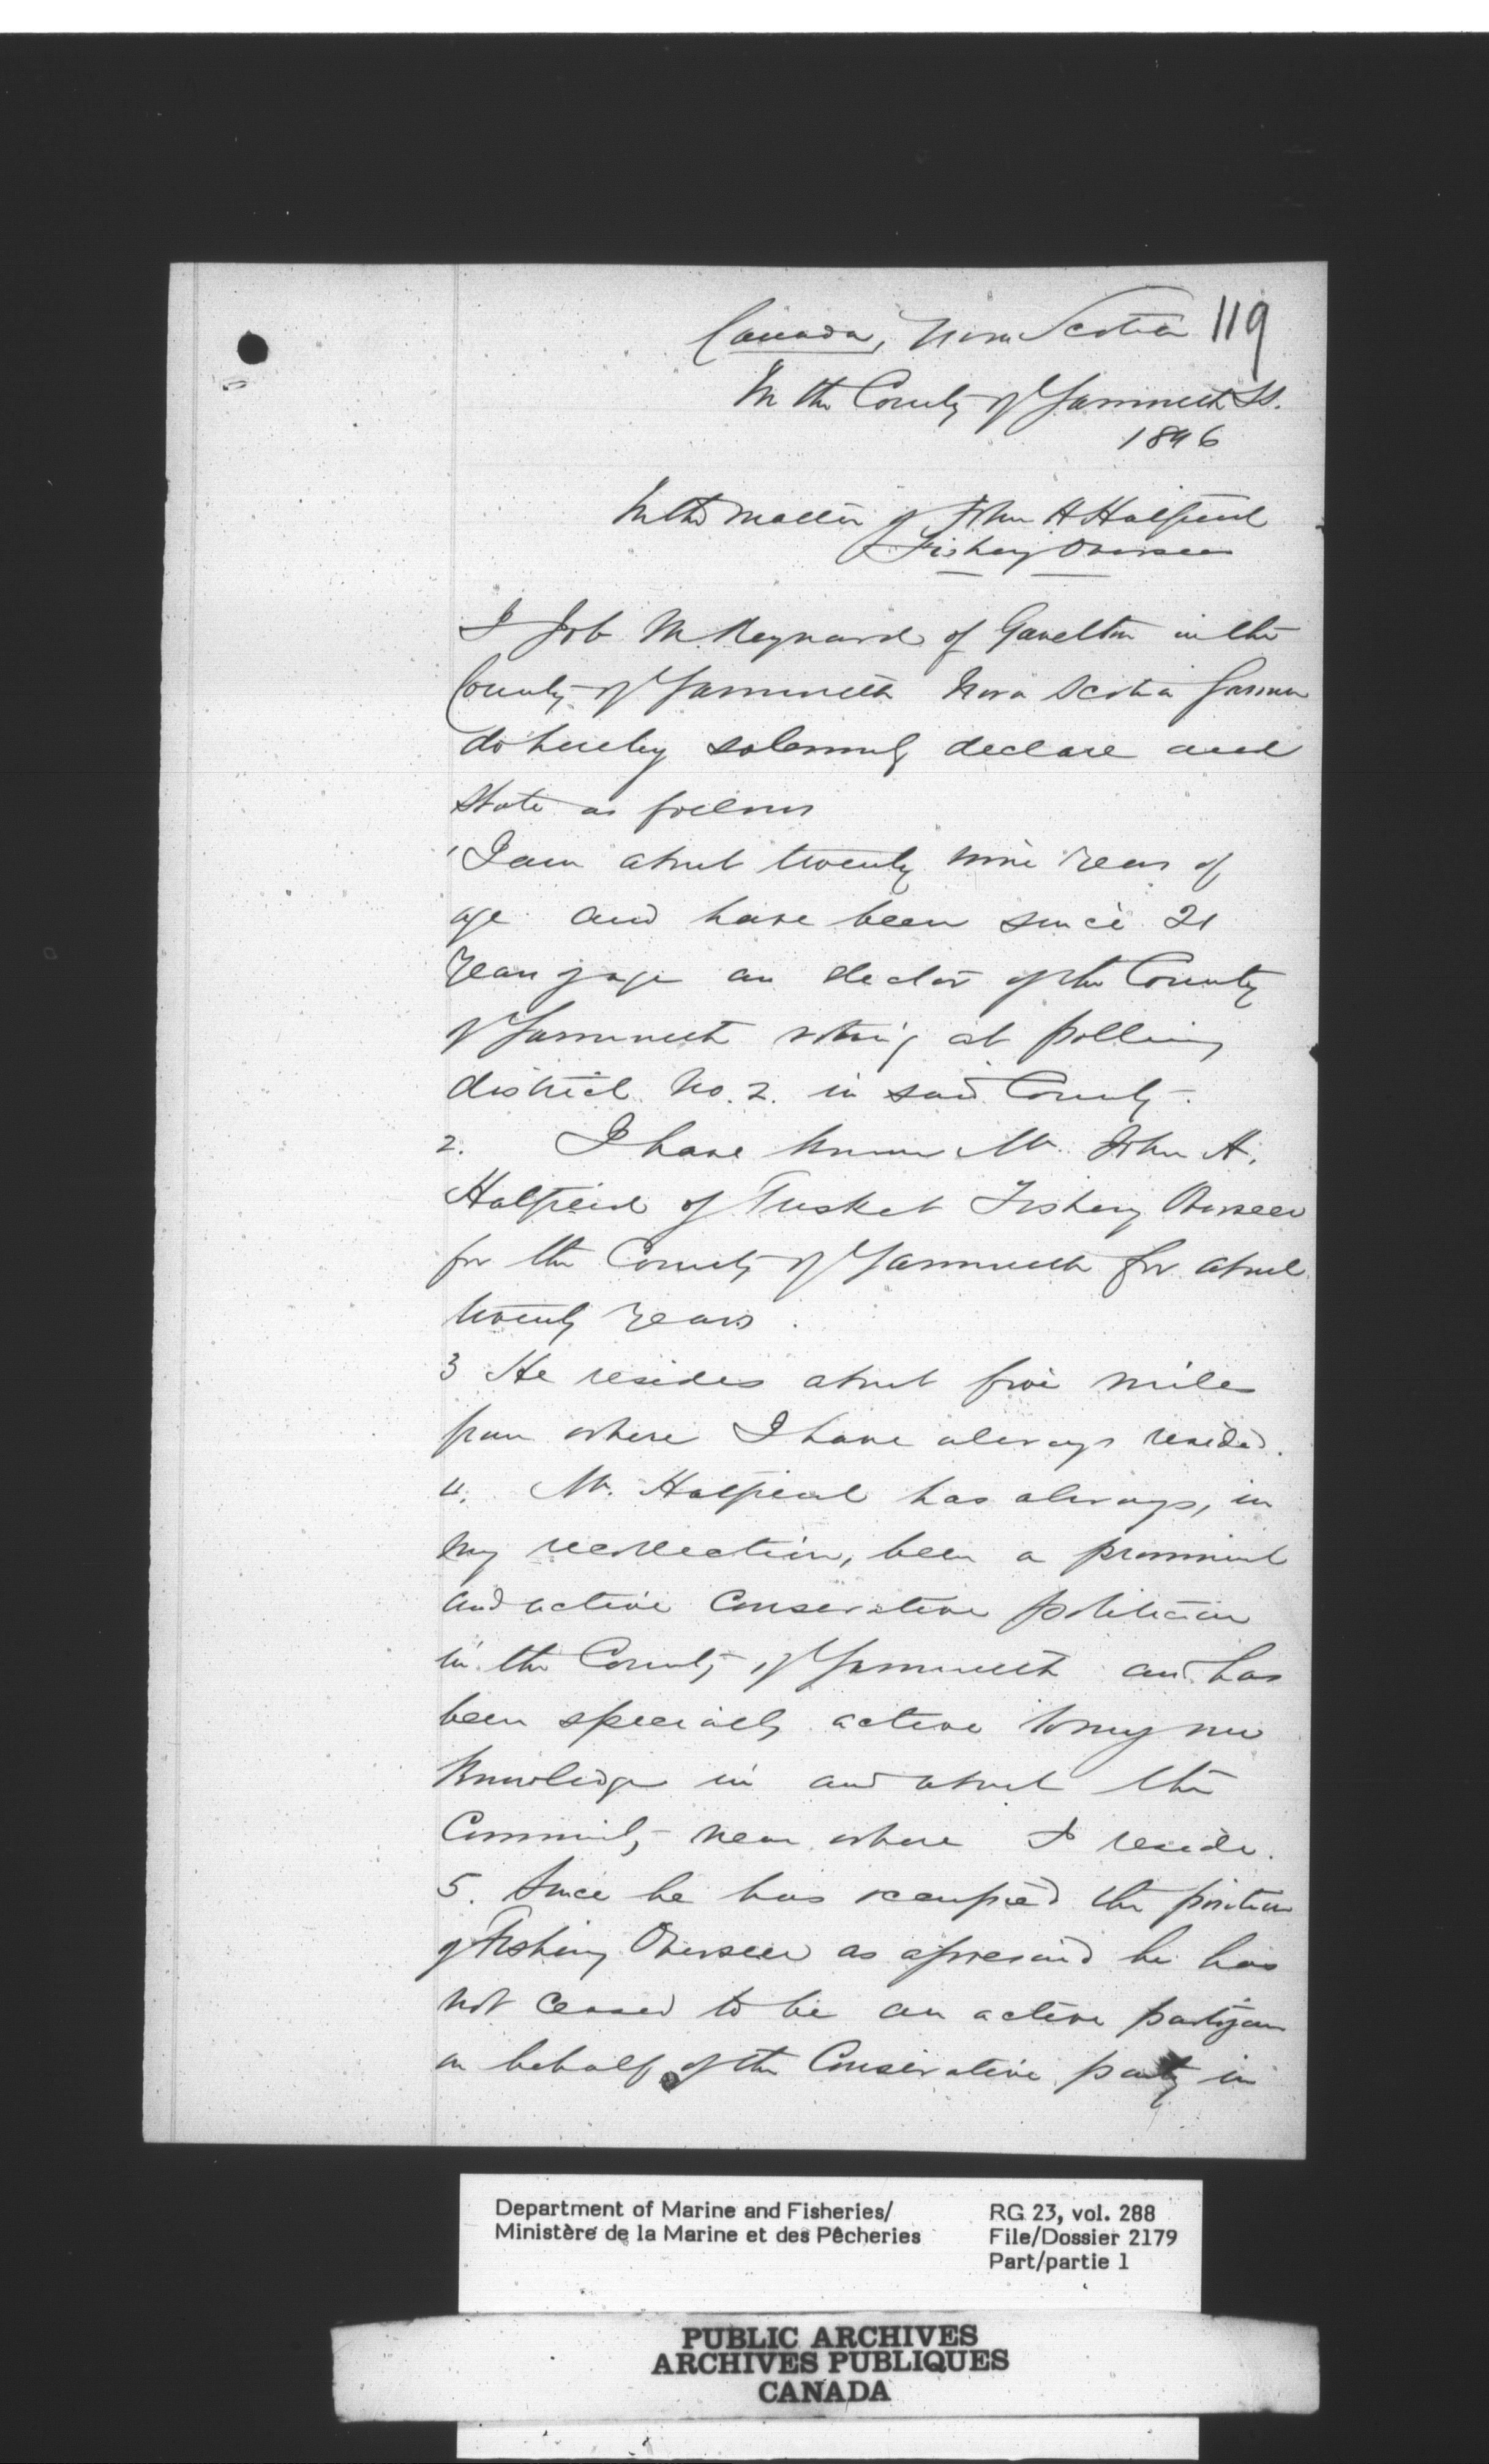 119
Canada, Nova Scotia
In the County of Yarmouth SS.
1896
In the matter of John H Hatfield
Fishery Overseer
I Job M. Raynard of Gavelton in the
County of Yarmouth Nova Scotia farmer
do hereby solemnly declare and
state as follows
1 I am about twenty nine years of
age and have been since 21
years of age an elector of the County
of Yarmouth voting at polling
district No. 2. in said County.
2. I have known Mr. John H.
Hatfield of Tusket Fishery Overseer
for the County of Yarmouth for about
twenty years.
3 He resides about five miles
from where I have always resided.
4. Mr. Hatfield has always, in
my recollection, been a prominent
and active Conservative politician
in the County of Yarmouth and has
been specially active to my own
Knowledge in and about the
Community near where I reside.
5. Since he has occupied the position
of Fishery Overseer as aforesaid he has
not ceased to be an active partizan
on behalf of the Conservative party in
Department of Marine and Fisheries/
Ministère de la Marine et des Pêcheries
RG 23, vol. 288
File/Dossier 2179
Part/partie 1
PUBLIC ARCHIVES
ARCHIVES PUBLIQUES
CANADA